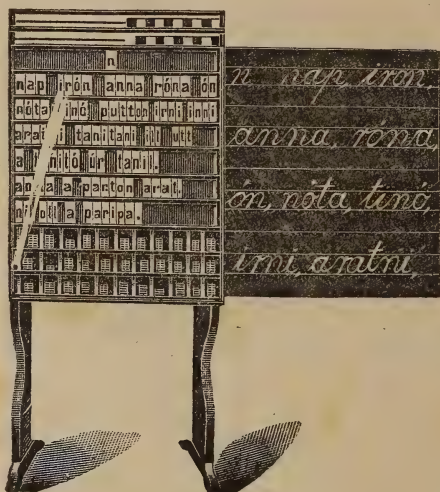 n
nap irón anna róna ón
nóta tinó putton irni inni
aratni tanitani ill utt
a tanitó úr tanit.
anna a parton arat.
a paripa.
n nap, irón,
anna, róna,
ón, nóta, tinó,
irni, aratni,